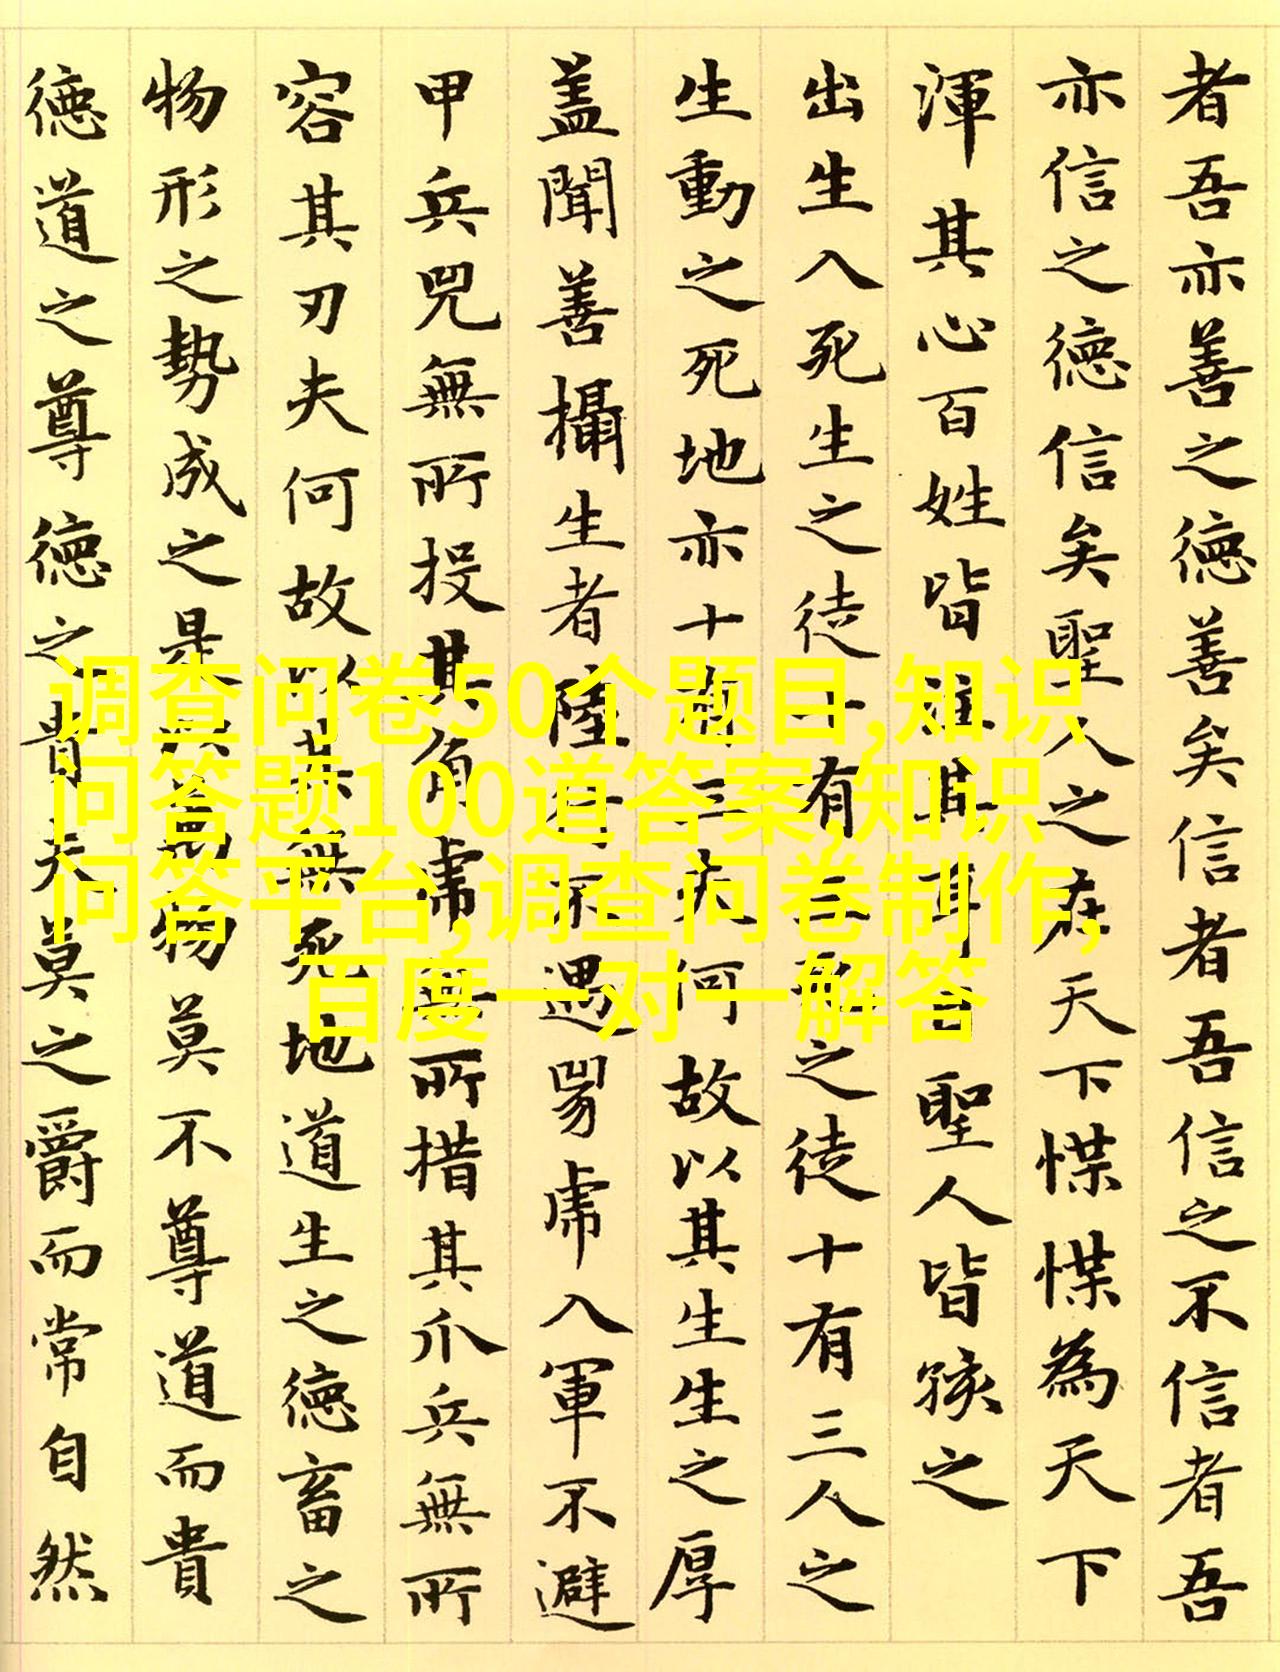 者吾亦善之德善矣信者吾信之不信者吾
亦信之德信矣聖人之在天下惵惵為天下
渾其心百姓皆注其耳目聖人皆孩之
出生入死生之徒十有三死之徒十有三人之
生動之死地亦十有三夫何故以其生生之厚
蓋聞善攝生者陸行不遇兕虎入軍不避
甲兵兕無所投其角虎無所措其爪兵無所
容其刃夫何故以其無死地道生之德畜之
物形之勢成之是以萬物莫不尊道而貴
德道之尊德之貴夫莫之爵而常自然
调查问卷50个题目,知识
问答题100道答案,知识
问答平台,调查问卷制作,
百度一对一解答